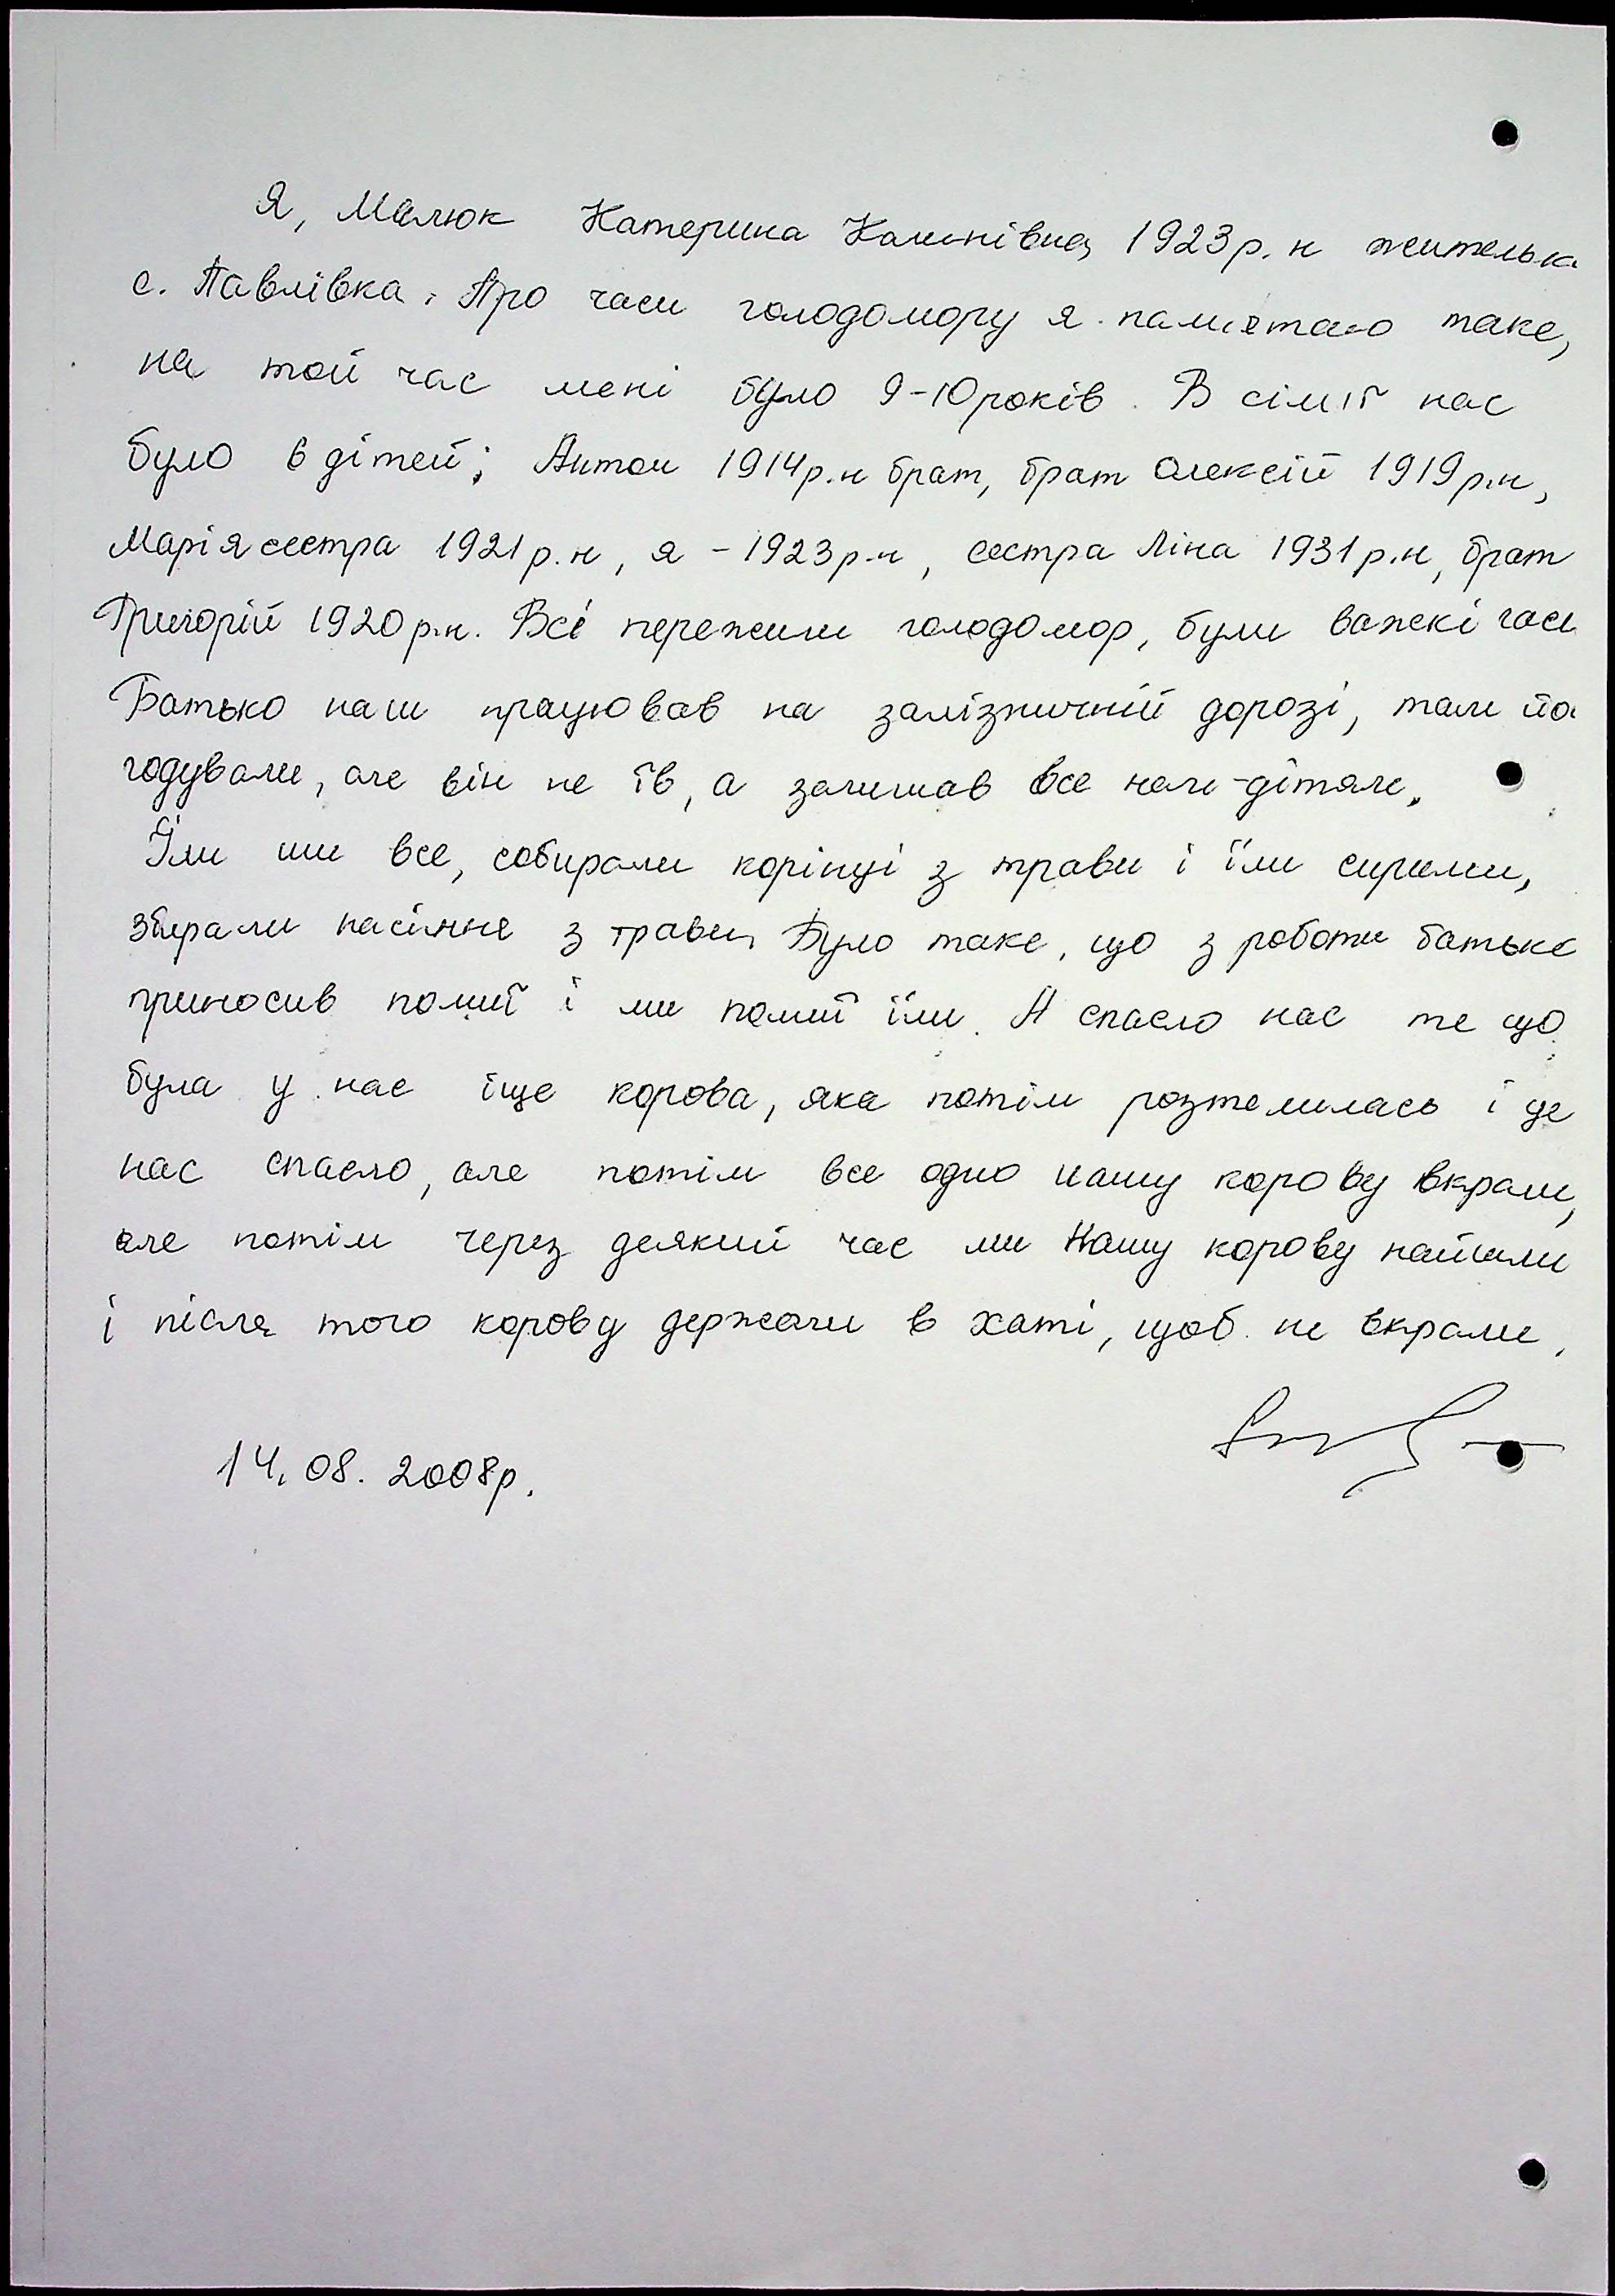 Я, Малюк Катерина Калинівна, 1923р. н жителька
с. Павлівка. Про часи голодомору я памʼятаю таке,
на той час мені було 9-10 років. В сімʼї нас
було 6 дітей; Антон 1914р.н брат, брат Олексій 1919р.н,
Марія сестра 1921р.н, я - 1923р.н, сестра Ліна 1931р.н, брат
Григорій 1920р.н. Всі пережили голодомор, були важкі часи
Батько наш працював на залізничній дорозі, там йо
годували, але він не їв, а залишав все нам-дітям.
Їли ми все, собирали корінці з трави і їли сирими,
збирали насіння з трави, Було таке, що з роботи батько
приносив помиї і ми помиї їли. А спасло нас те що
була у нас іще корова, яка потім розтелилась і це
нас спасло, але потім все одно нашу корову вкрали,
але потім через деякий час ми нашу корову найшли
і після того корову держали в хаті, щоб не вкрали.
14.08.2008р.